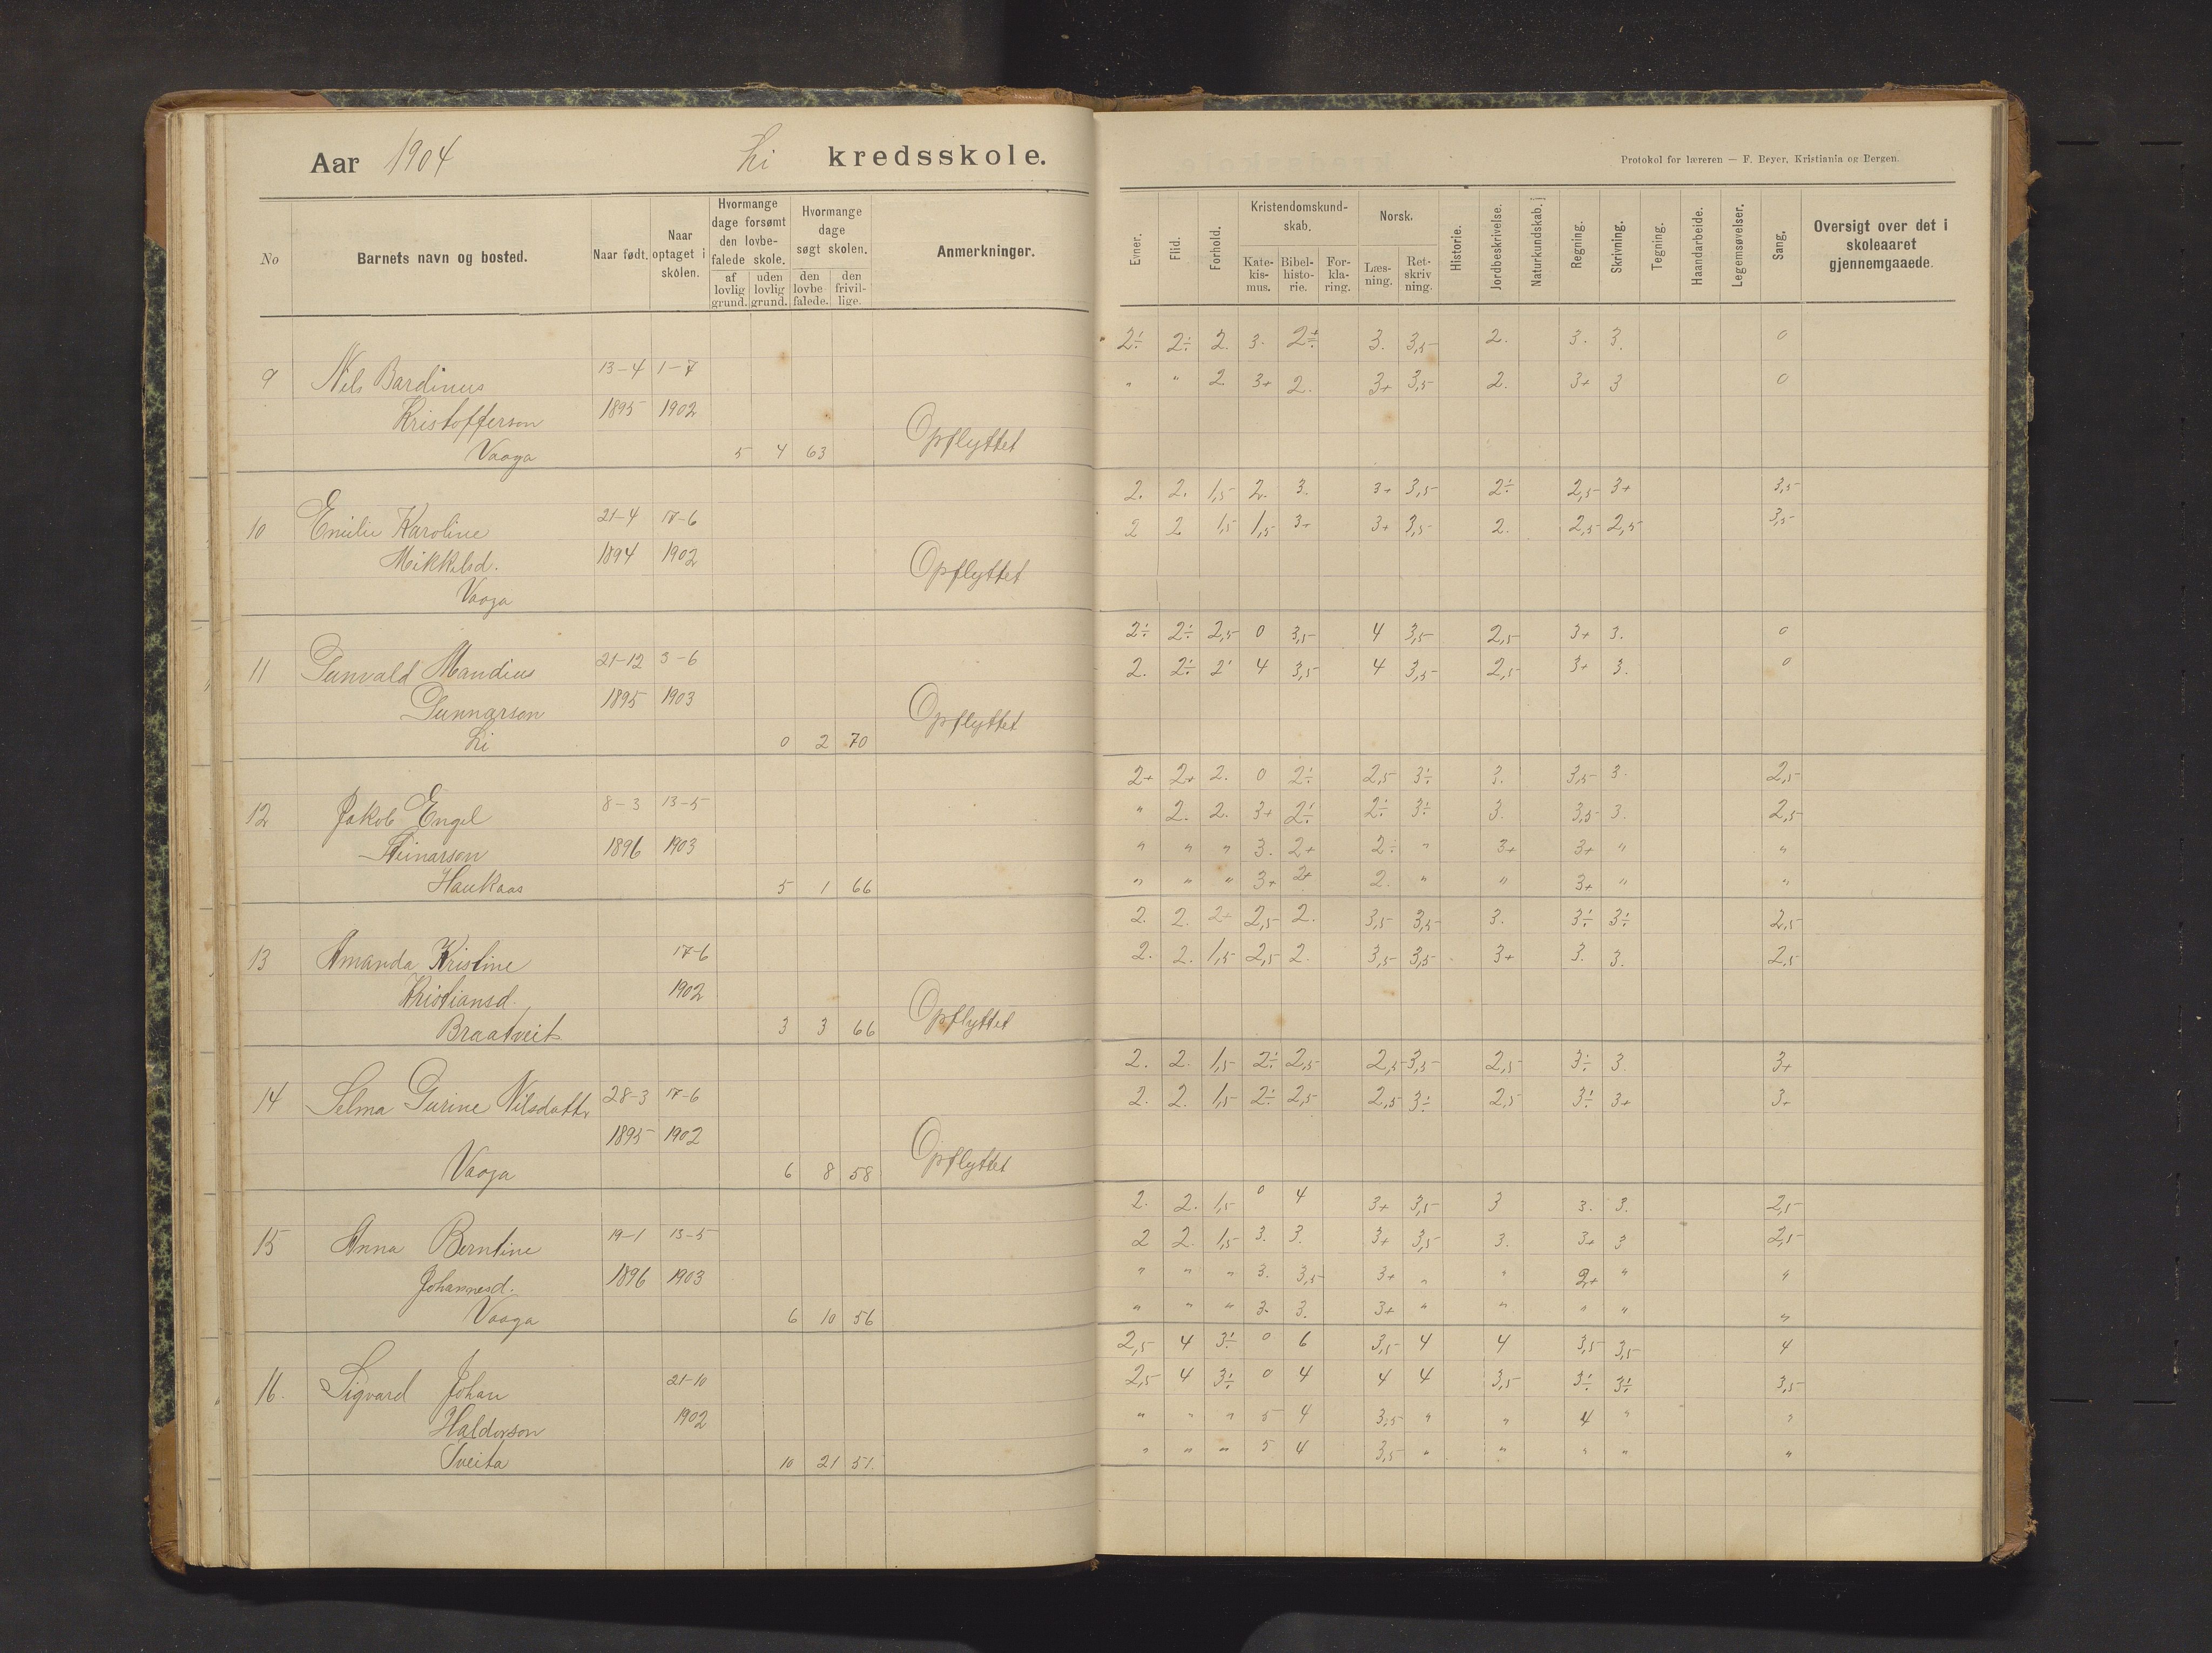 Aar 1904 Li kredsskole.
No
Barnets navn og bosted.
Naar født.
Naar optaget i skolen.
Hvormange dage forsømt den lovbefalede skole.
af lovlig grund.
uden lovlig grund.
Hvormange dage søgt skolen.
den lovbefalede.
den frivillige.
Anmerkninger.
9 Nils Bardinus 13-4 1-7
Kristofferson 1895 1902
Vaaga 5 4 63 Opflyttet
10 Emilie Karoline 21-4 17-6
Mikkelsd. 1894 1902
Vaaga Opflyttet
11 Gunvald Mandius 21-12 3-6
Gunnarson 1895 1903
Li 0 2 70 Opflyttet
12 Jakob Engel 8-3 13-5
Steinarson 1896 1903
Haukaas 5 1 66
13 Amanda Kristine 17-6
Kristiansd. 1902
Braatveit 3 3 66 Opflyttet
14 Selma Gurine Nilsdattr 28-3 17-6
1895 1902
Vaaga 6 8 58 Opflyttet
15 Anna Berntine 19-1 13-5
Johannesd. 1896 1903
Vaaga 6 10 56
16. Sigvard Johan 21-10
Haldorson 1902
Tveita 10 21 51.
Protokol for læreren — F. Beyer, Kristiania og Bergen.
Evner.
Flid.
Forhold.
Kristendomskundskab.
Katekismus.
Bibelhistorie.
Forklaring.
Norsk.
Læsning.
Retskrivning.
Historie.
Jordbeskrivelse.
Naturkundskab.
Regning.
Skrivning.
Tegning.
Haandarbeide.
Legemsøvelser.
Sang.
Oversigt over det i skoleaaret gjennemgaaede.
2÷ 2÷ 2. 3. 2± 3. 3,5 2. 3. 3. 0
" " 2. 3+ 2. 3+ 3,5 2. 3+ 3 0
2. 2. 1,5 2. 3. 3+ 3,5 2÷ 2,5 3+ 3,5
2 2 1,5 1,5 3+ 3+ 3,5 2. 2,5 2,5 3,5
2÷ 2÷ 2,5 0 3,5 4 3,5 2,5 3+ 3. 0
2. 2÷ 2' 4 3,5 4 3,5 2,5 3+ 3. 0
2+ 2+ 2. 0 2÷ 2,5 3÷ 3. 3,5 3. 2,5
" 2. 2. 3+ 2÷ 2÷ 3÷ 3. 3,5 3. 2,5
" " " 3. 2+ 2÷ " 3+ 3+ " "
" " " 3+ 2+ 2. " " 3+ " "
2. 2. 2+ 2,5 2. 3,5 3,5 3. 3÷ 3÷ 2,5
2. 2. 1,5 2,5 2. 3,5 3,5 3+ 3. 3. 2,5
2. 2. 1,5 2÷ 2,5 2,5 3,5 2,5 3÷ 3. 3+
2. 2. 1,5 2÷ 2,5 2,5 3÷ 2,5 3÷ 3+ 3+
2. 2. 1,5 0 4 3+ 3,5 3 3. 3. 2,5
2 2. 1,5 3. 3. 3+ 3,5 3. 3+ 3 2,5
" " " 3. 3,5 3+ " " 2+ " "
" " " 3. 3. 3+ " " " " "
2,5 4 3÷ 0 6 3,5 4 4 3,5 3,5 4
2,5 4 3÷ 0 4 4 4 3,5 3÷ 3÷ 3,5
" " " 5 4 3,5 " " 4 " "
" " " 5 4 3,5 " " " " "